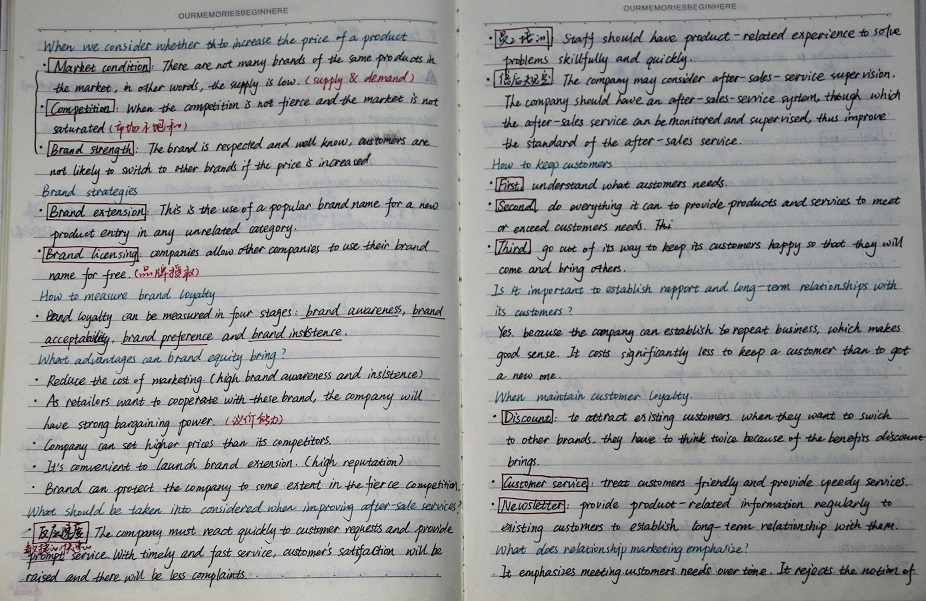 OURMEMORIESBEGINHERE
When we consider whether to increase the price of a product
· Market condition: There are not many brands of the same products in
the market, in other words, the supply is low. (supply & demand)
· Competition: When the competition is not fierce and the market is not
saturated (市场不饱和)
· Brand strength: The brand is respected and well know, customers are
not likely to switch to other brands if the price is increased
Brand strategies
· Brand extension: This is the use of a popular brand name for a new
product entry in any unrelated category.
· Brand licensing: companies allow other companies to use their brand
name for free. (品牌授权)
How to measure brand loyalty
· Band loyalty can be measured in four stages: brand awareness, brand
acceptability, brand preference and brand insistence.
What advantages can brand equity bring?
· Reduce the cost of marketing. (high brand awareness and insistence)
· As retailors want to cooperate with these brand, the company will
have strong bargaining power. (议价能力)
· Company can set higher prices than its competitors.
· It's convenient to launch brand extension. (high reputation)
· Brand can protect the company to some extent in the fierce competition.
What should be taken into considered when improving after-sale services?
· 反应速度 The company must react quickly to customer requests and provide
prompt service. With timely and fast service, customer's satisfaction will be
raised and there will be less complaints.
OURMEMORIESBEGINHERE
· 员工培训 Staff should have product-related experience to solve
problems skillfully and quickly.
· The company may consider after-sales-service supervision.
The company should have an after-sales-service system, though which
the after-sales service can be monitored and supervised, thus improve
the standard of the after-sales service.
How to keep customers
· First, understand what customers needs.
· Second, do everything it can to provide products and services to meet
or exceed customers needs. Thi
· Third, go out of its way to keep its customers happy so that they will
come and bring others.
Is it important to establish rapport and long-term relationships with
its customers?
Yes. because the company can establish to repeat business, which makes
good sense. It costs significantly less to keep a customer than to get
a new one.
When maintain customer loyalty.
· Discount: to attract existing customers when they want to swich
to other brands. they have to think twice because of the benefits discount
brings.
· Customer service: treat customers friendly and provide speedy services.
· Newsletter: provide product-related information regularly to
existing customers to establish long-term relationship with them.
What does relationship marketing emphasize?
It emphasizes meeting customers needs over time. It rejects the notion of